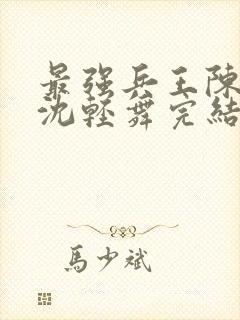 最强兵王陈
沈轻舞完結
馬少斌